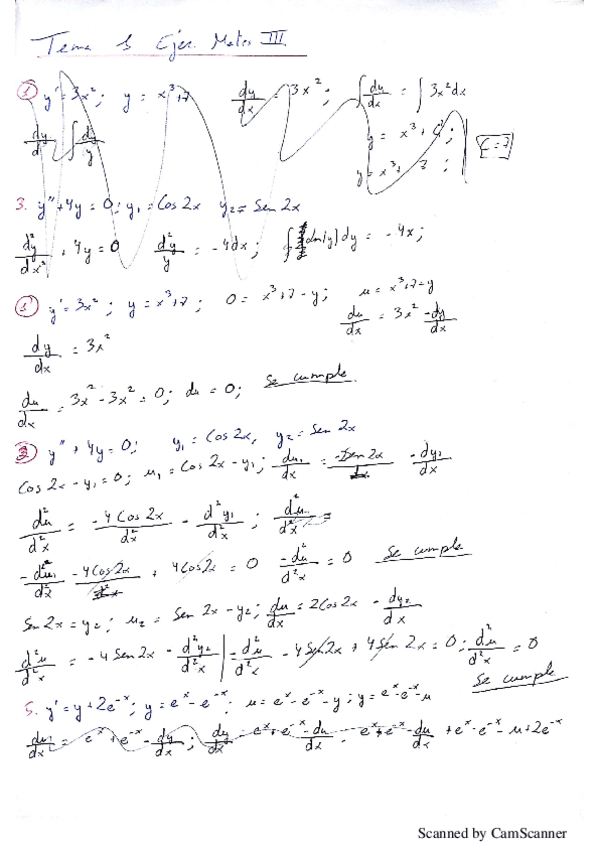 Tema 1 Ejer. Mates III
① y' = 3x²; y = x³+7   dy/dx = 3x²; ∫ dy/dx = ∫ 3x² dx
dy/d ∫ dy/y   y = x³ + C;   C=7
y = x³+ 7 ;
3. y'' + 4y = 0; y₁ = Cos 2x   y₂ = Sen 2x
d²y/dx² + 4y = 0   d²y/y = -4dx;   dy = -4x;
① y' = 3x²; y = x³+7;   0 = x³+7-y;   u = x³+7-y
du/dx = 3x² - dy/dx
dy/dx = 3x²
du/dx = 3x² - 3x² = 0; du = 0;   Se cumple
③ y'' + 4y = 0;   y₁ = Cos 2x,   y₂ = Sen 2x
Cos 2x - y₁ = 0; u₁ = Cos 2x - y₁; du₁/dx = -2Sen 2x - dy₁/dx
d²u/d²x = -4Cos 2x/d²x - d²y₁/d²x ; du/d²x =
-d²u₁/d²x -4Cos 2x + 4Cos 2x = 0   -d²u/d²x = 0   Se cumple
Sen 2x = y₂; u₂ = Sen 2x - y₂; du/dx = 2Cos 2x - dy₂/dx
d²u/d²x = -4 Sen 2x - d²y₂/d²x | = d²u/d²x - 4 Sen 2x + 4 Sen 2x = 0; d²u/d²x = 0
Se cumple
5. y' = y + 2e⁻ˣ; y = eˣ - e⁻ˣ; u = eˣ - e⁻ˣ - y; y = eˣ - e⁻ˣ - u
du/dx = eˣ + e⁻ˣ - dy/dx; dy/dx = eˣ + e⁻ˣ - du/dx; eˣ + e⁻ˣ - du/dx + eˣ - e⁻ˣ - u + 2e⁻ˣ
Scanned by CamScanner